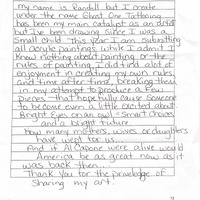 my name is Randall but I create
under the name Ghost One Tattooing
has been my main catalyst as an artist
but i've been drawing since I was a
small child. This year I am submitting
all acrylic paintings while I admit I
know nothing about painting or the
rules of painting I did find alot of
enjoyment in creating my own rules
and time after time, breaking them
in my attempt to produce a few
pieces that hopefully cause someone
to become even a little excited about
Bright Eyes on an owl = Smart choices
and a bright future
How many mothers, wives or daughters
have went for us
And is Al Capone were alive would
America be as great now as it
was back then...?
Thank You for the priveledge of
Sharing my art.